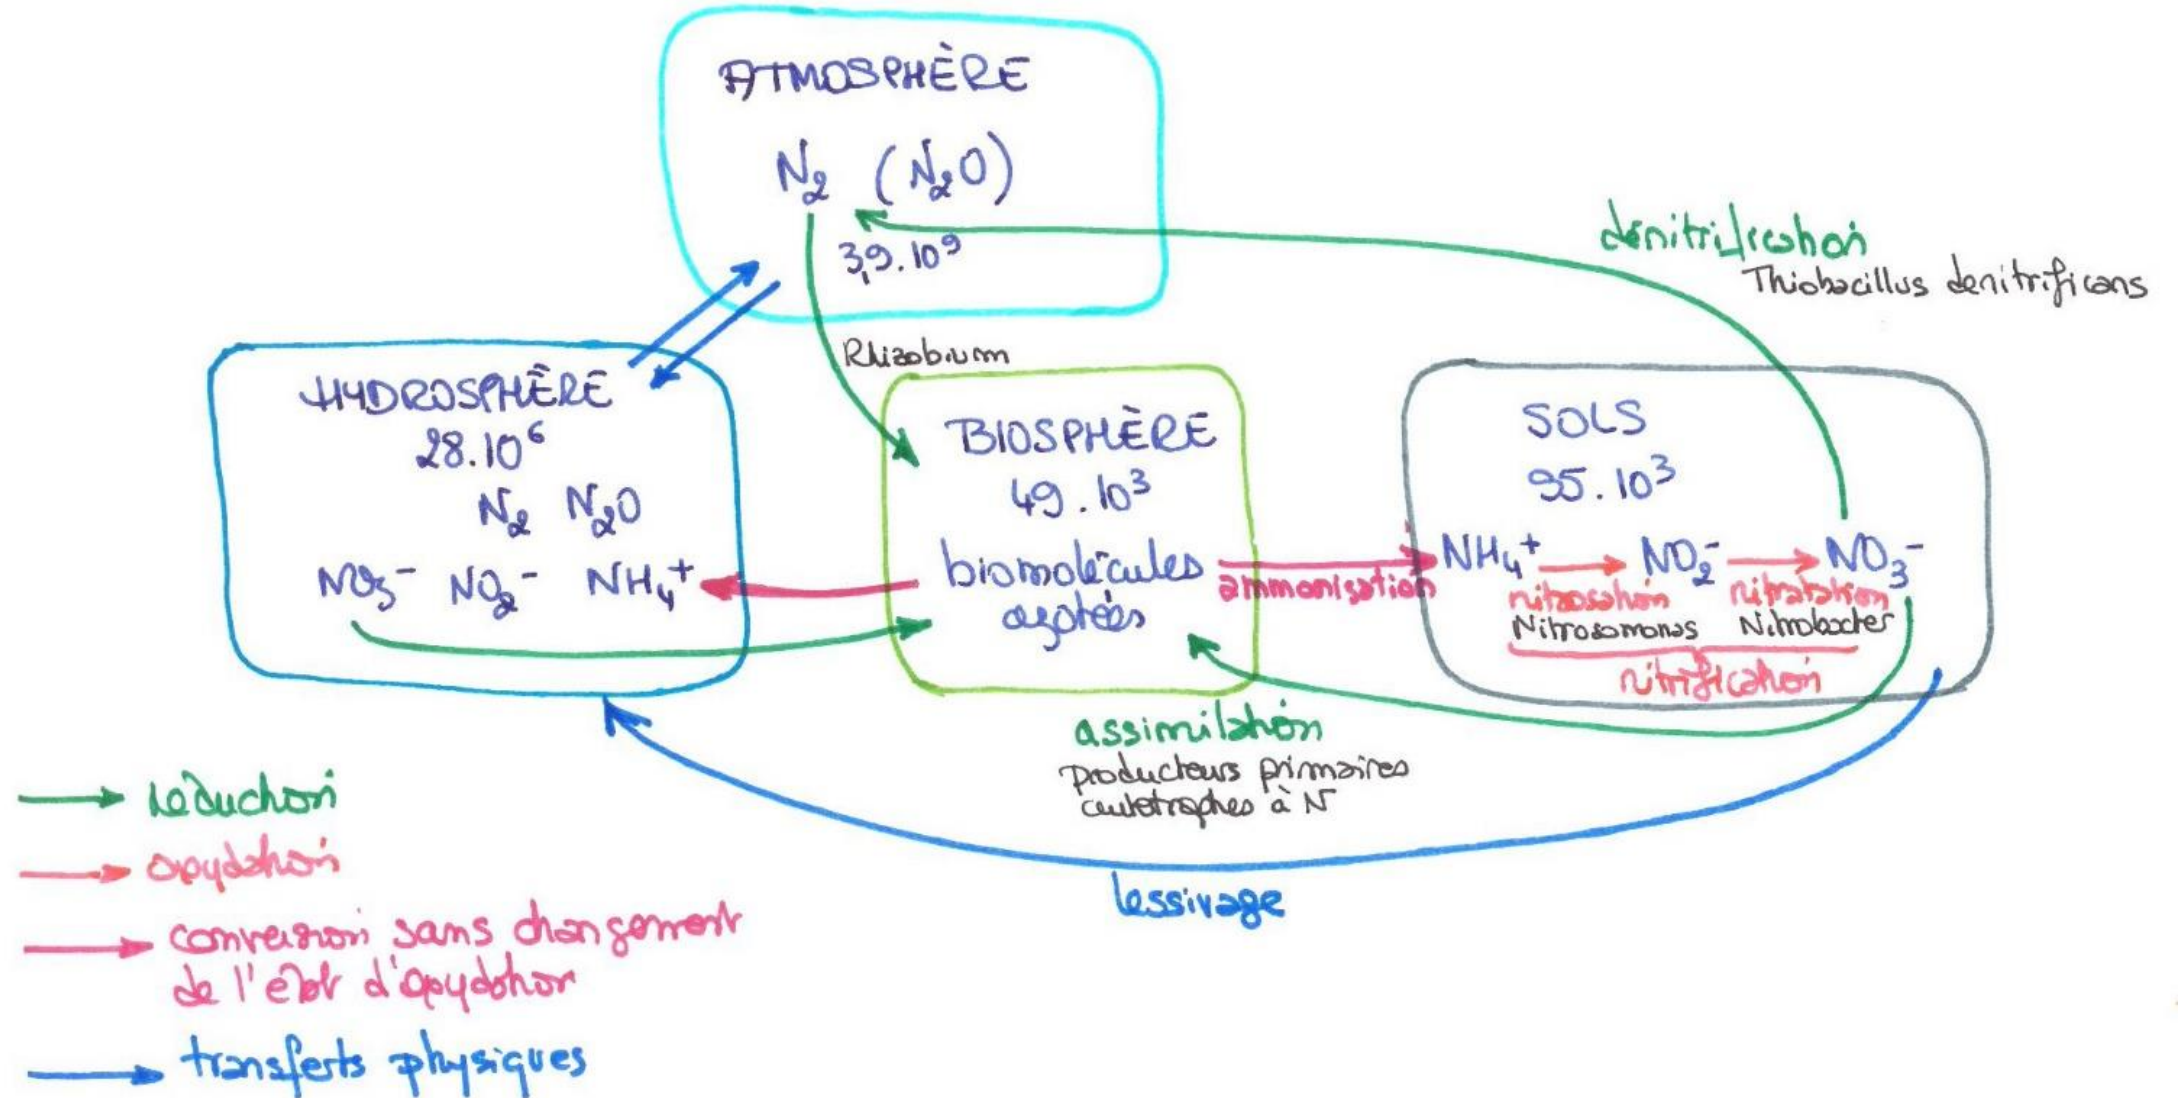 ATMOSPHÈRE
N₂ (N₂O)
3,9.10⁹
dénitrification
Thiobacillus denitrificans
Rhizobium
HYDROSPHÈRE
28.10⁶
N₂ N₂O
NO₃⁻ NO₂⁻ NH₄⁺
BIOSPHÈRE
49.10³
biomolécules
azotées
ammonisation
SOLS
95.10³
NH₄⁺ NO₂⁻ NO₃⁻
nitrosation nitratation
Nitrosomonas Nitrobacter
nitrification
assimilation
producteurs primaires
autotrophes à N
lessivage
réduction
oxydation
conversion sans changement
de l'état d'oxydation
transferts physiques